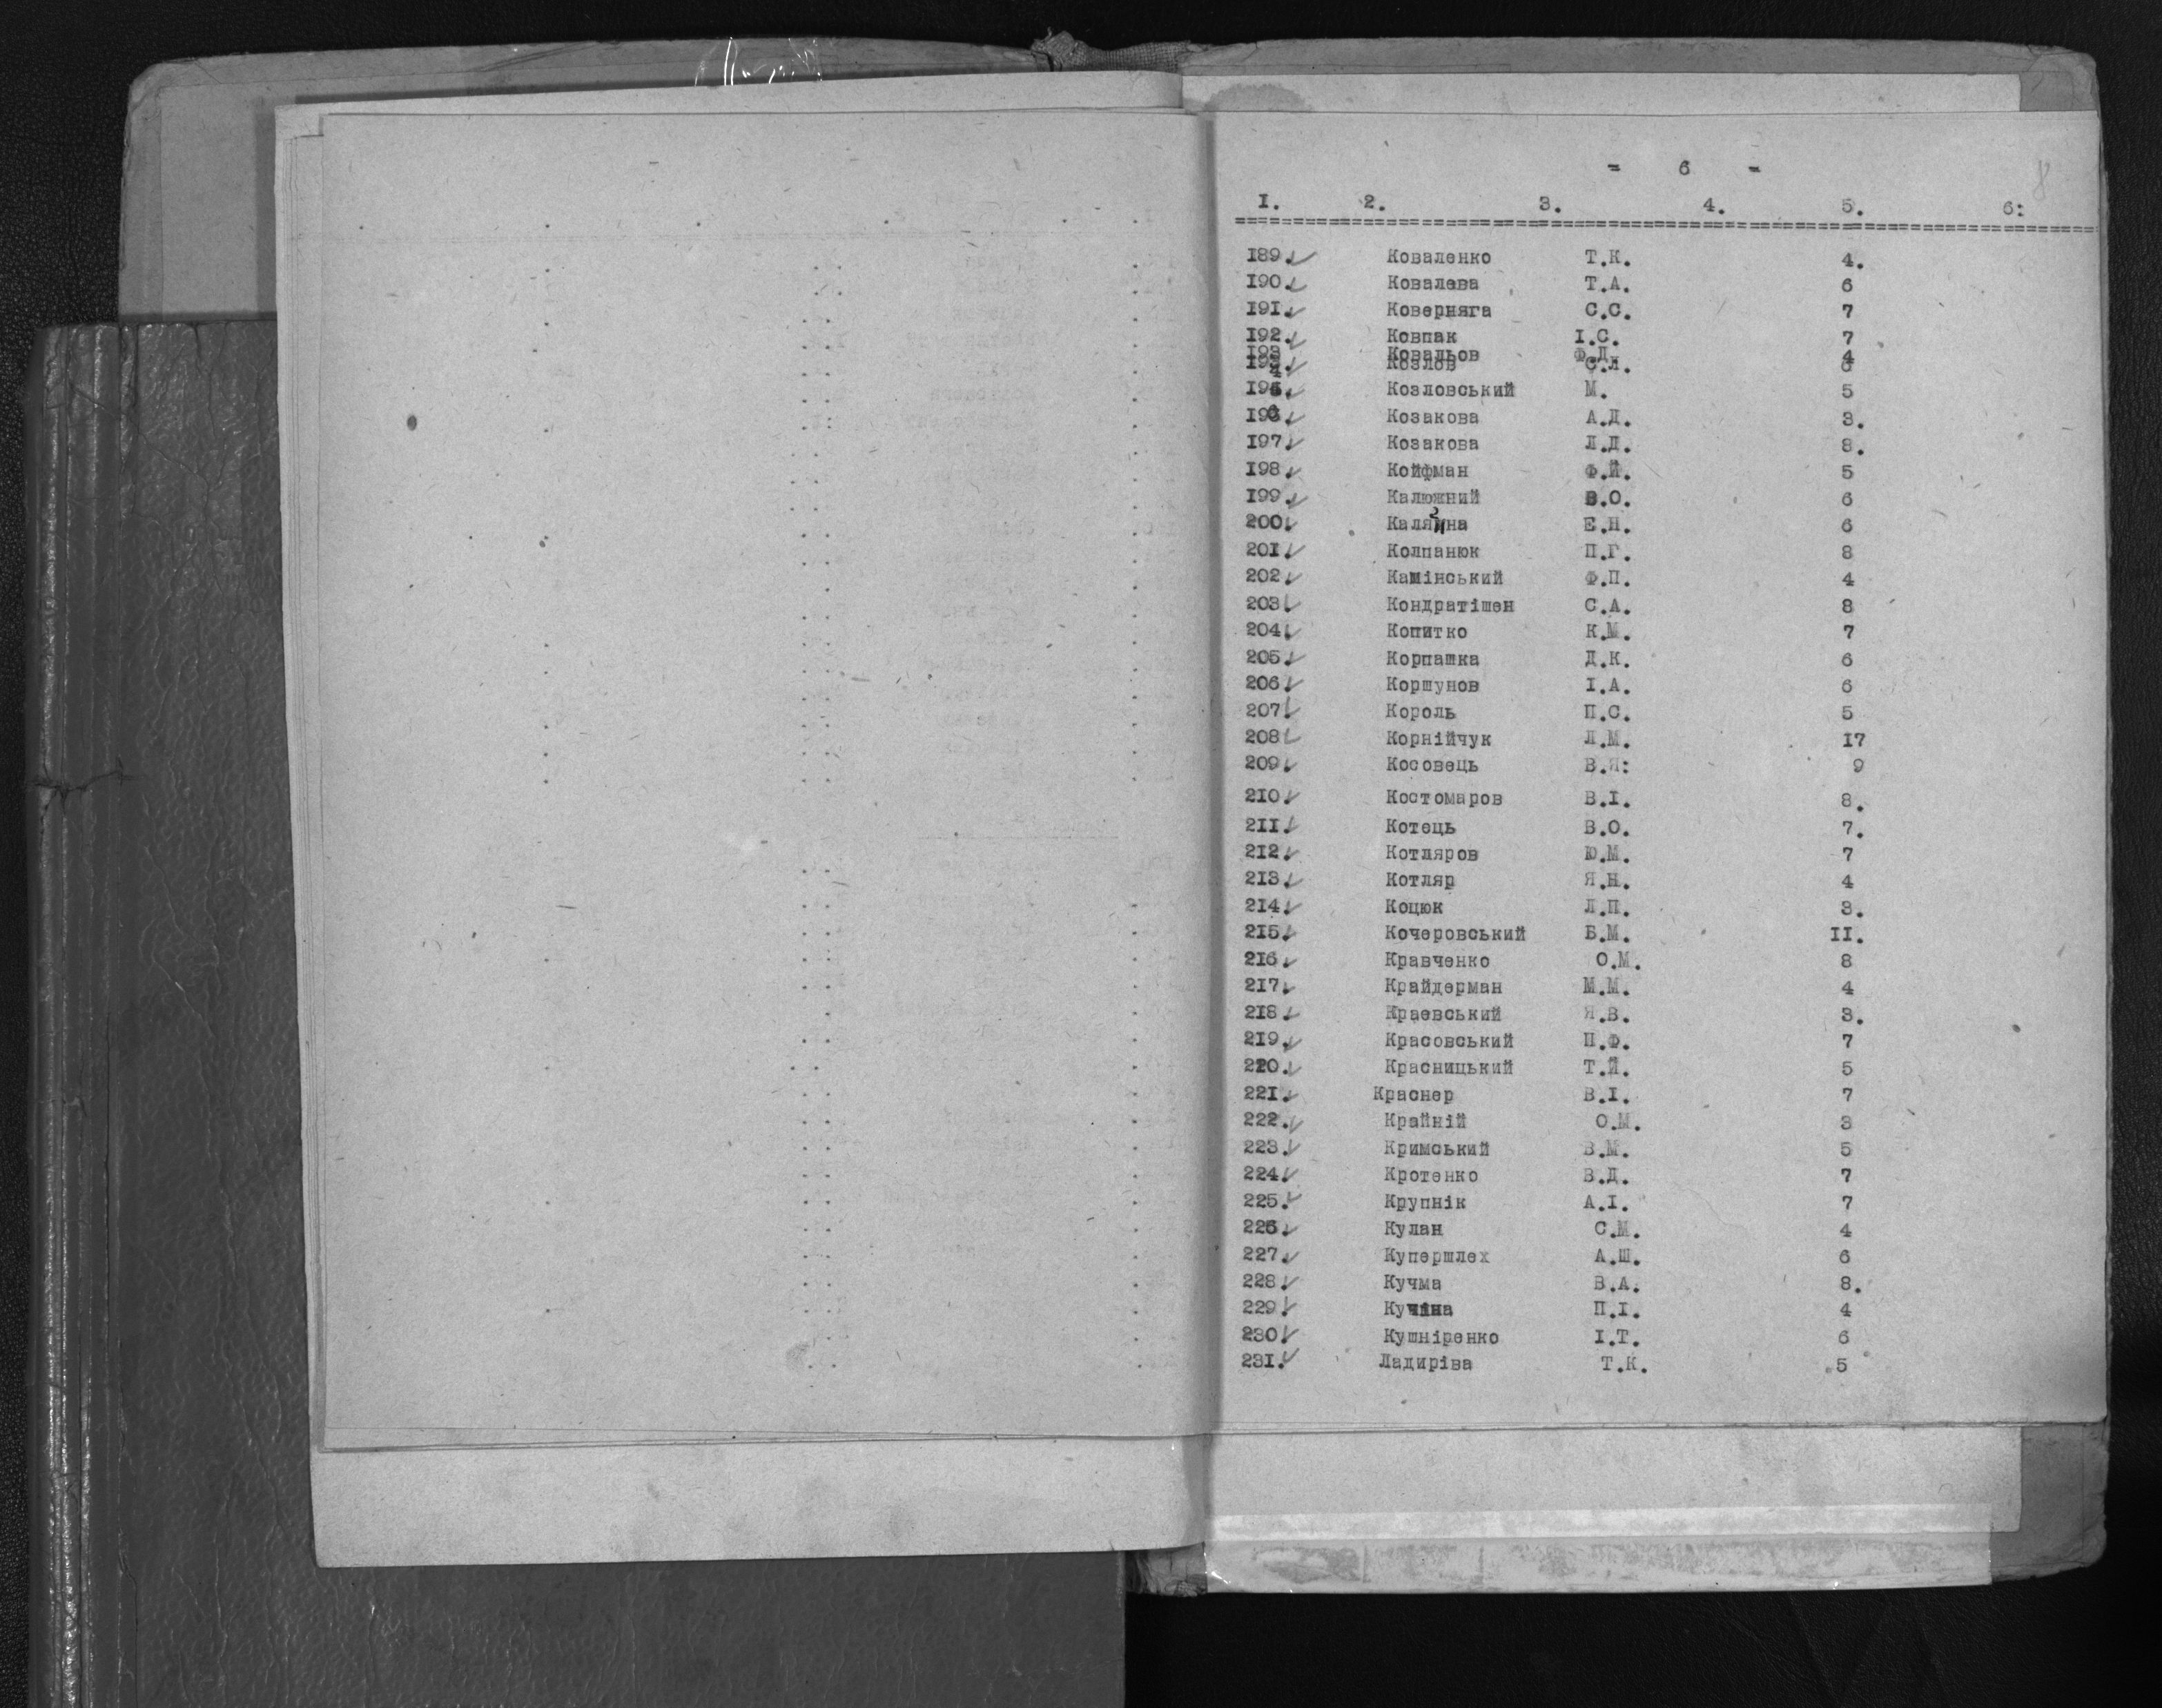 = 6 =
8
I. 2. 3. 4. 5. 6:
I89. Коваленко Т.К. 4.
I90. Ковалева Т.А. 6
I9I. Коверняга С.С. 7
I92. Ковпак І.С. 7
I93 Ковальов Ф.Д. 4
I94. Козлов С.Л. 6
I95. Козловський М. 5
I96. Козакова А.Д. 3.
I97. Козакова Л.Д. 8.
I98. Койфман Ф.Й. 5
I99. Калюжний В.О. 6
200. Е.Н. 6
20I. Колпанюк П.Г. 8
202. Камінський Ф.П. 4
203. Кондратішен С.А. 8
204. Копитко К.М. 7
205. Корпашка Д.К. 6
206. Коршунов І.А. 6
207. Король П.С. 5
208 Корнійчук Л.М. I7
209. Косовець В.Я: 9
2I0. Костомаров В.І. 8.
2II. Котець В.О. 7.
2I2. Котляров Ю.М. 7
2I3. Котляр Я.Н. 4
2I4. Коцюк Л.П. 3.
2I5. Кочеровський Б.М. II.
2I6. Кравченко О.М. 8
2I7. Крайдерман М.М. 4
2I8. Краевський Я.В. 3.
2I9. Красовський П.Ф. 7
220. Красницький Т.Й. 5
22I. Краснер В.І. 7
222. Крайній О.М. 3
223. Кримський В.М. 5
224. Кротенко В.Д. 7
225. Крупнік А.І. 7
226. Кулан С.М. 4
227. Купершлех А.Ш. 6
228. Кучма В.А. 8.
229. Кучіна П.І. 4
230. Кушніренко І.Т. 6
23I. Ладиріва Т.К. 5